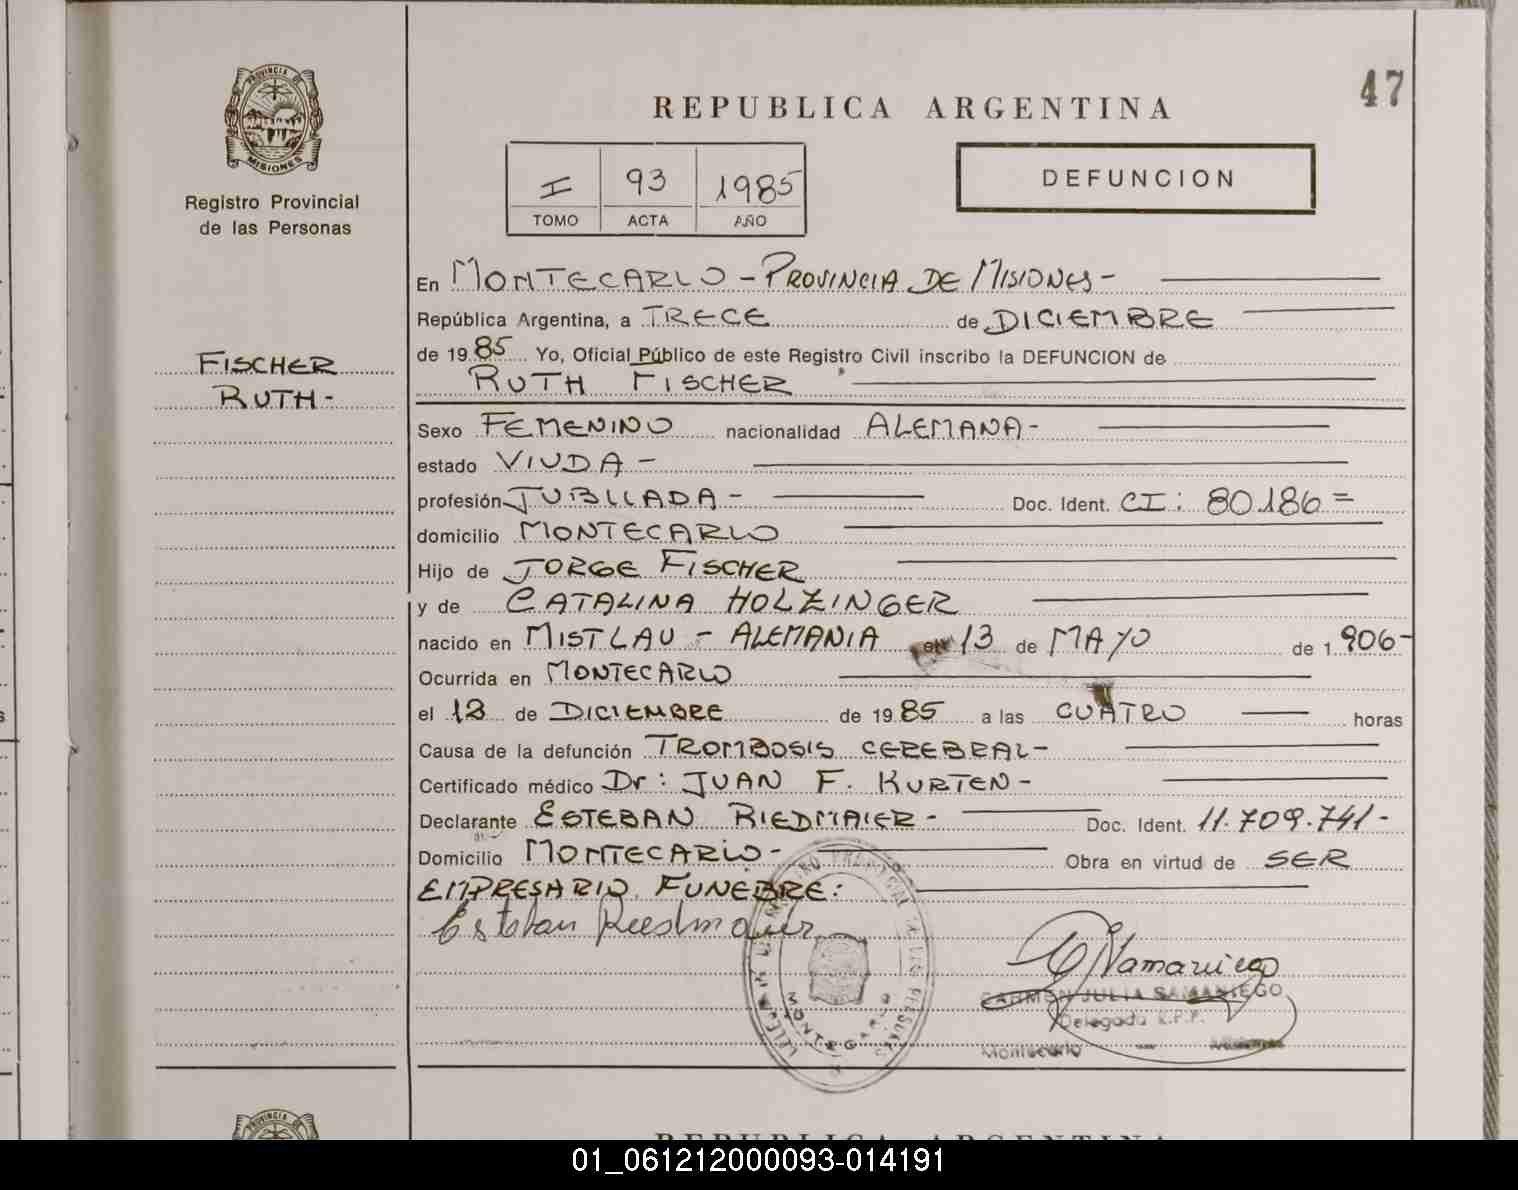 47
PROVINCIA DE
MISIONES
Registro Provincial
de las Personas
FISCHER
RUTH -
REPUBLICA ARGENTINA
I 93 1985
TOMO ACTA AÑO
DEFUNCION
En MONTECARLO - PROVINCIA DE MISIONES -
República Argentina, a TRECE de DICIEMBRE
de 1985 Yo, Oficial Público de este Registro Civil inscribo la DEFUNCION de
RUTH FISCHER
Sexo FEMENINO nacionalidad ALEMANA -
estado VIUDA -
profesión JUBILADA - Doc. Ident. CI: 80.186 =
domicilio MONTECARLO
Hijo de JORGE FISCHER
y de CATALINA HOLZINGER
nacido en MISTLAU - ALEMANIA el 13 de MAYO de 1.906 -
Ocurrida en MONTECARLO
el 13 de DICIEMBRE de 1985 a las CUATRO horas
Causa de la defunción TROMBOSIS CEREBRAL -
Certificado médico Dr: JUAN F. KURTEN -
Declarante ESTEBAN RIEDMAIER - Doc. Ident. 11.709.741 -
Domicilio MONTECARLO - Obra en virtud de SER
EMPRESARIO FUNEBRE:
Esteban Riedmaier
CARMEN JULIA SAMANIEGO
Delegada R.P.P.
Montecarlo - Misiones
MONTECARLO
PROVINCIA DE
REPUBLICA ARGENTINA
01_061212000093-014191